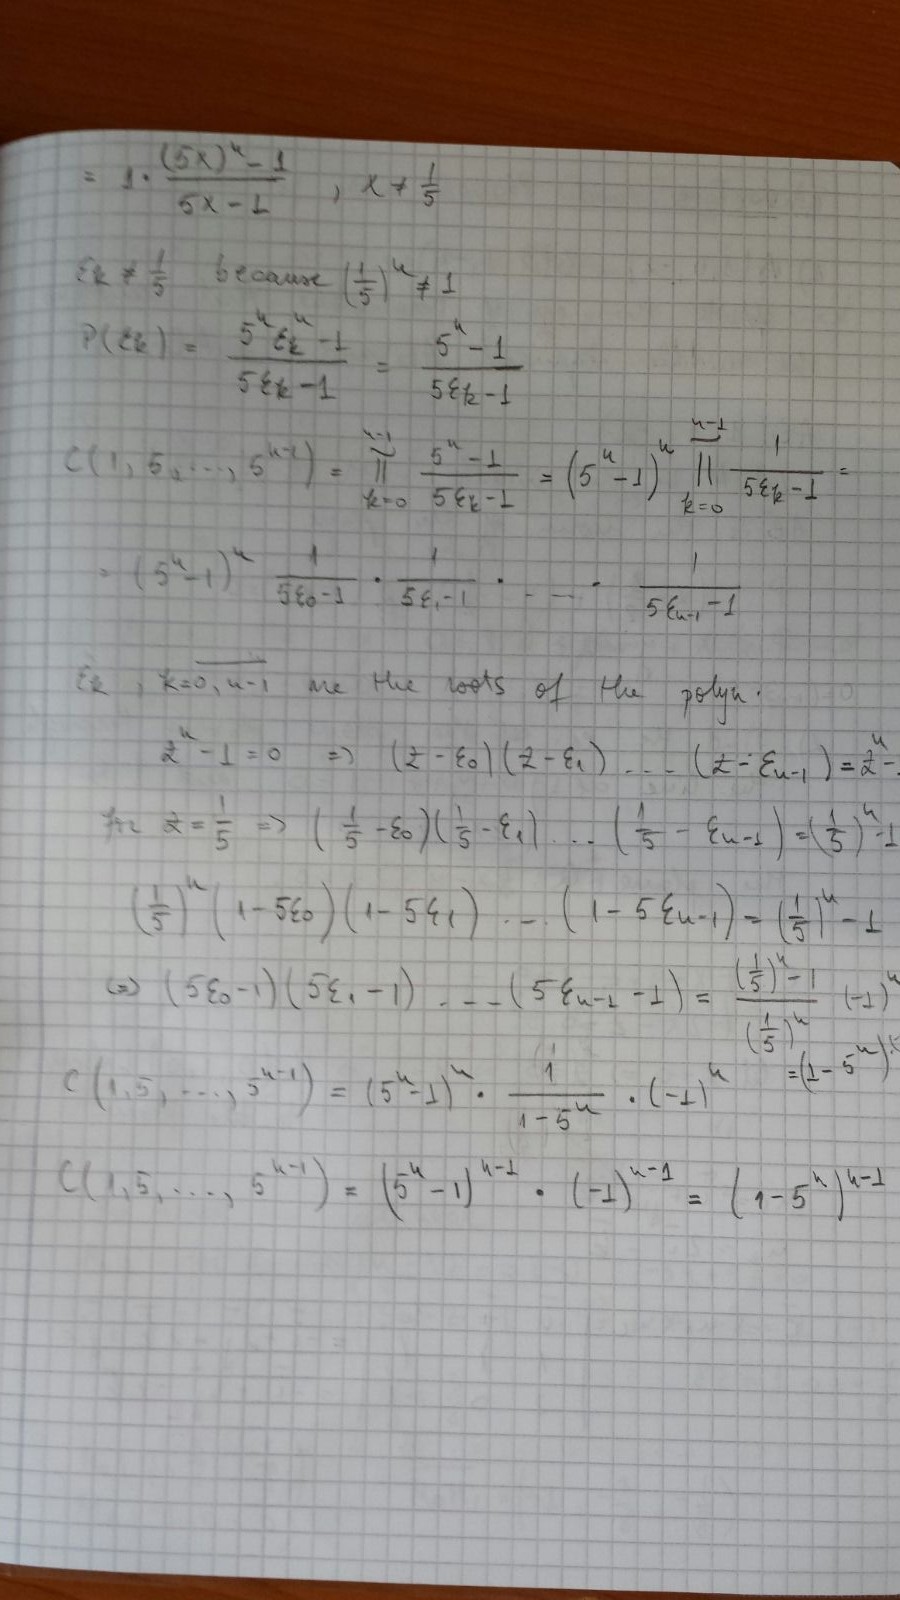 = 1 · ((5x)^n - 1)/(5x - 1) , x ≠ 1/5
εk ≠ 1/5 because (1/5)^n ≠ 1
P(εk) = (5^n εk^n - 1)/(5εk - 1) = (5^n - 1)/(5εk - 1)
C(1, 5, ..., 5^(n-1)) = ∏_(k=0)^(n-1) (5^n - 1)/(5εk - 1) = (5^n - 1)^n ∏_(k=0)^(n-1) 1/(5εk - 1) =
= (5^n - 1)^n 1/(5ε0 - 1) · 1/(5ε1 - 1) · ... · 1/(5εn-1 - 1)
εk , k=0, n-1 are the roots of the polyn.
z^n - 1 = 0 => (z - ε0)(z - ε1) ... (z - εn-1) = z^n -
for z = 1/5 => (1/5 - ε0)(1/5 - ε1) ... (1/5 - εn-1) = (1/5)^n - 1
(1/5)^n (1 - 5ε0)(1 - 5ε1) ... (1 - 5εn-1) = (1/5)^n - 1
=> (5ε0 - 1)(5ε1 - 1) ... (5εn-1 - 1) = ((1/5)^n - 1)/(1/5)^n (-1)^n
= (1 - 5^n)·(
C(1, 5, ..., 5^(n-1)) = (5^n - 1)^n · 1/(1 - 5^n) · (-1)^n
C(1, 5, ..., 5^(n-1)) = (5^n - 1)^(n-1) · (-1)^(n-1) = (1 - 5^n)^(n-1)